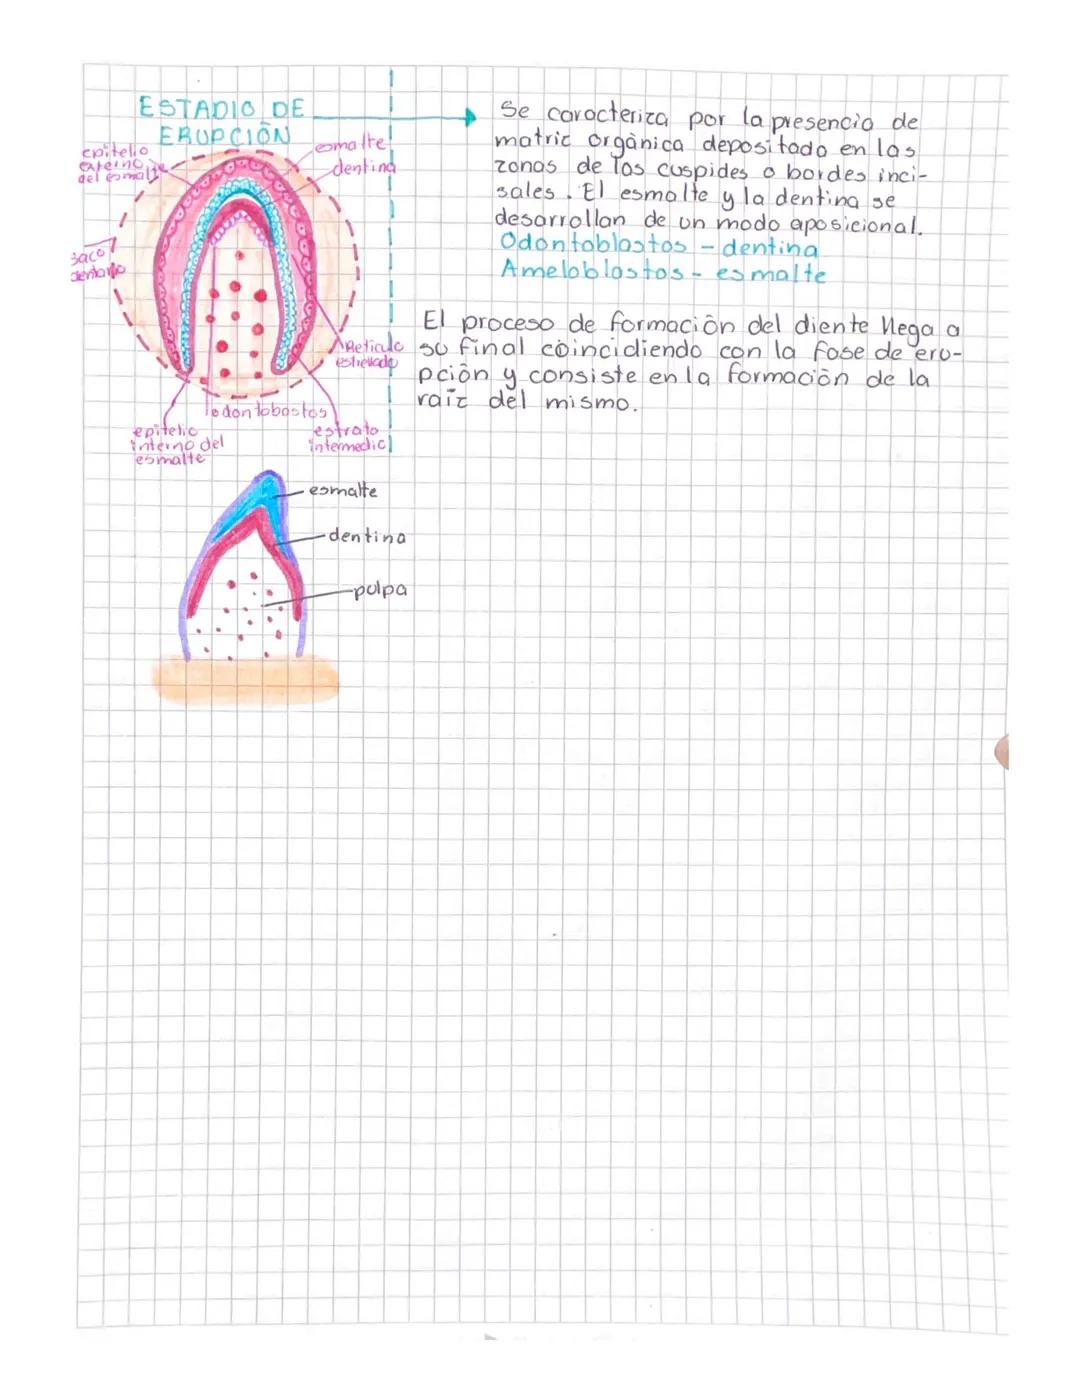 ESTADIO DE
ERUPCIÓN
epitelio
externo
del esmalte
esmalte
dentina
saco
dentario
Reticulo
estrellado
odontobostos
epitelio
interno del
esmalte
estrato
intermedio
Se caracteriza por la presencia de
matriz orgànica depositado en las
zonas de los cuspides o bordes inci-
sales. El esmalte y la dentina se
desarrollan de un modo aposicional.
Odontoblastos - dentina
Ameloblastos - esmalte
El proceso de formación del diente llega a
su final coincidiendo con la fase de eru-
pción y consiste en la formación de la
raíz del mismo.
esmalte
dentina
pulpa